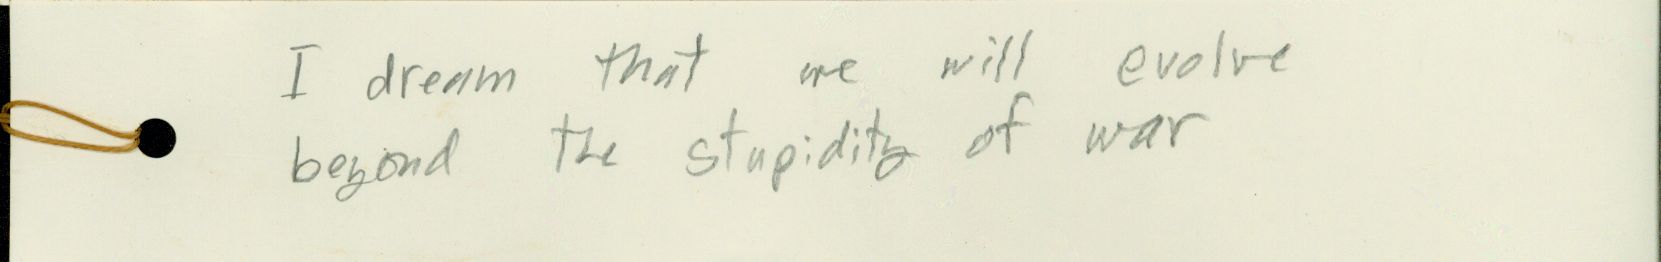 I dream that we will evolve
beyond the stupidity of war